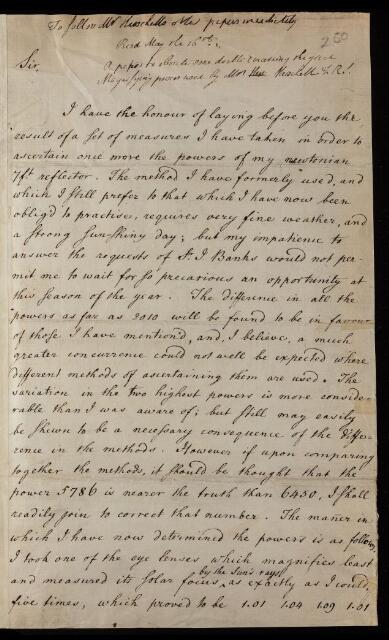 To follow Mr Herschel's other papers immediately
250
Read May the 16th
Sir,
A paper to obviate some doubts concerning the great
Magnifying powers used by Mr Herschel F.R.S.
I have the honour of laying before you the
result of a set of measures I have taken in order to
ascertain once more the powers of my newtonian
7ft reflector. The method I have formerly used, and
which I still prefer to that which I have now been
oblig'd to practise, requires very fine weather, and
a strong sun-shiny day; but my impatience to
answer the requests of Sr J Banks would not per-
mit me to wait for so precarious an opportunity at
this season of the year. The difference in all the
powers as far as 2010 will be found to be in favour
of those I have mention'd, and, I believe, a much
greater concurrence could not well be expected where
different methods of ascertaining them are used. The
variation in the two highest powers is more conside-
rable than I was aware of; but still may easily
be shewn to be a necessary consequence of the diffe-
rence in the methods. However if upon comparing
together the methods, it should be thought that the
power 5786 is nearer the truth than 6450, I shall
readily join to correct that number. The maner in
which I have now determined the powers is as follows,
I took one of the eye lenses which magnifies least
and measured its solar focus by the Sun's rays, as exactly as I could,
five times, which proved to be 1.01 1.04 1.09 1.01